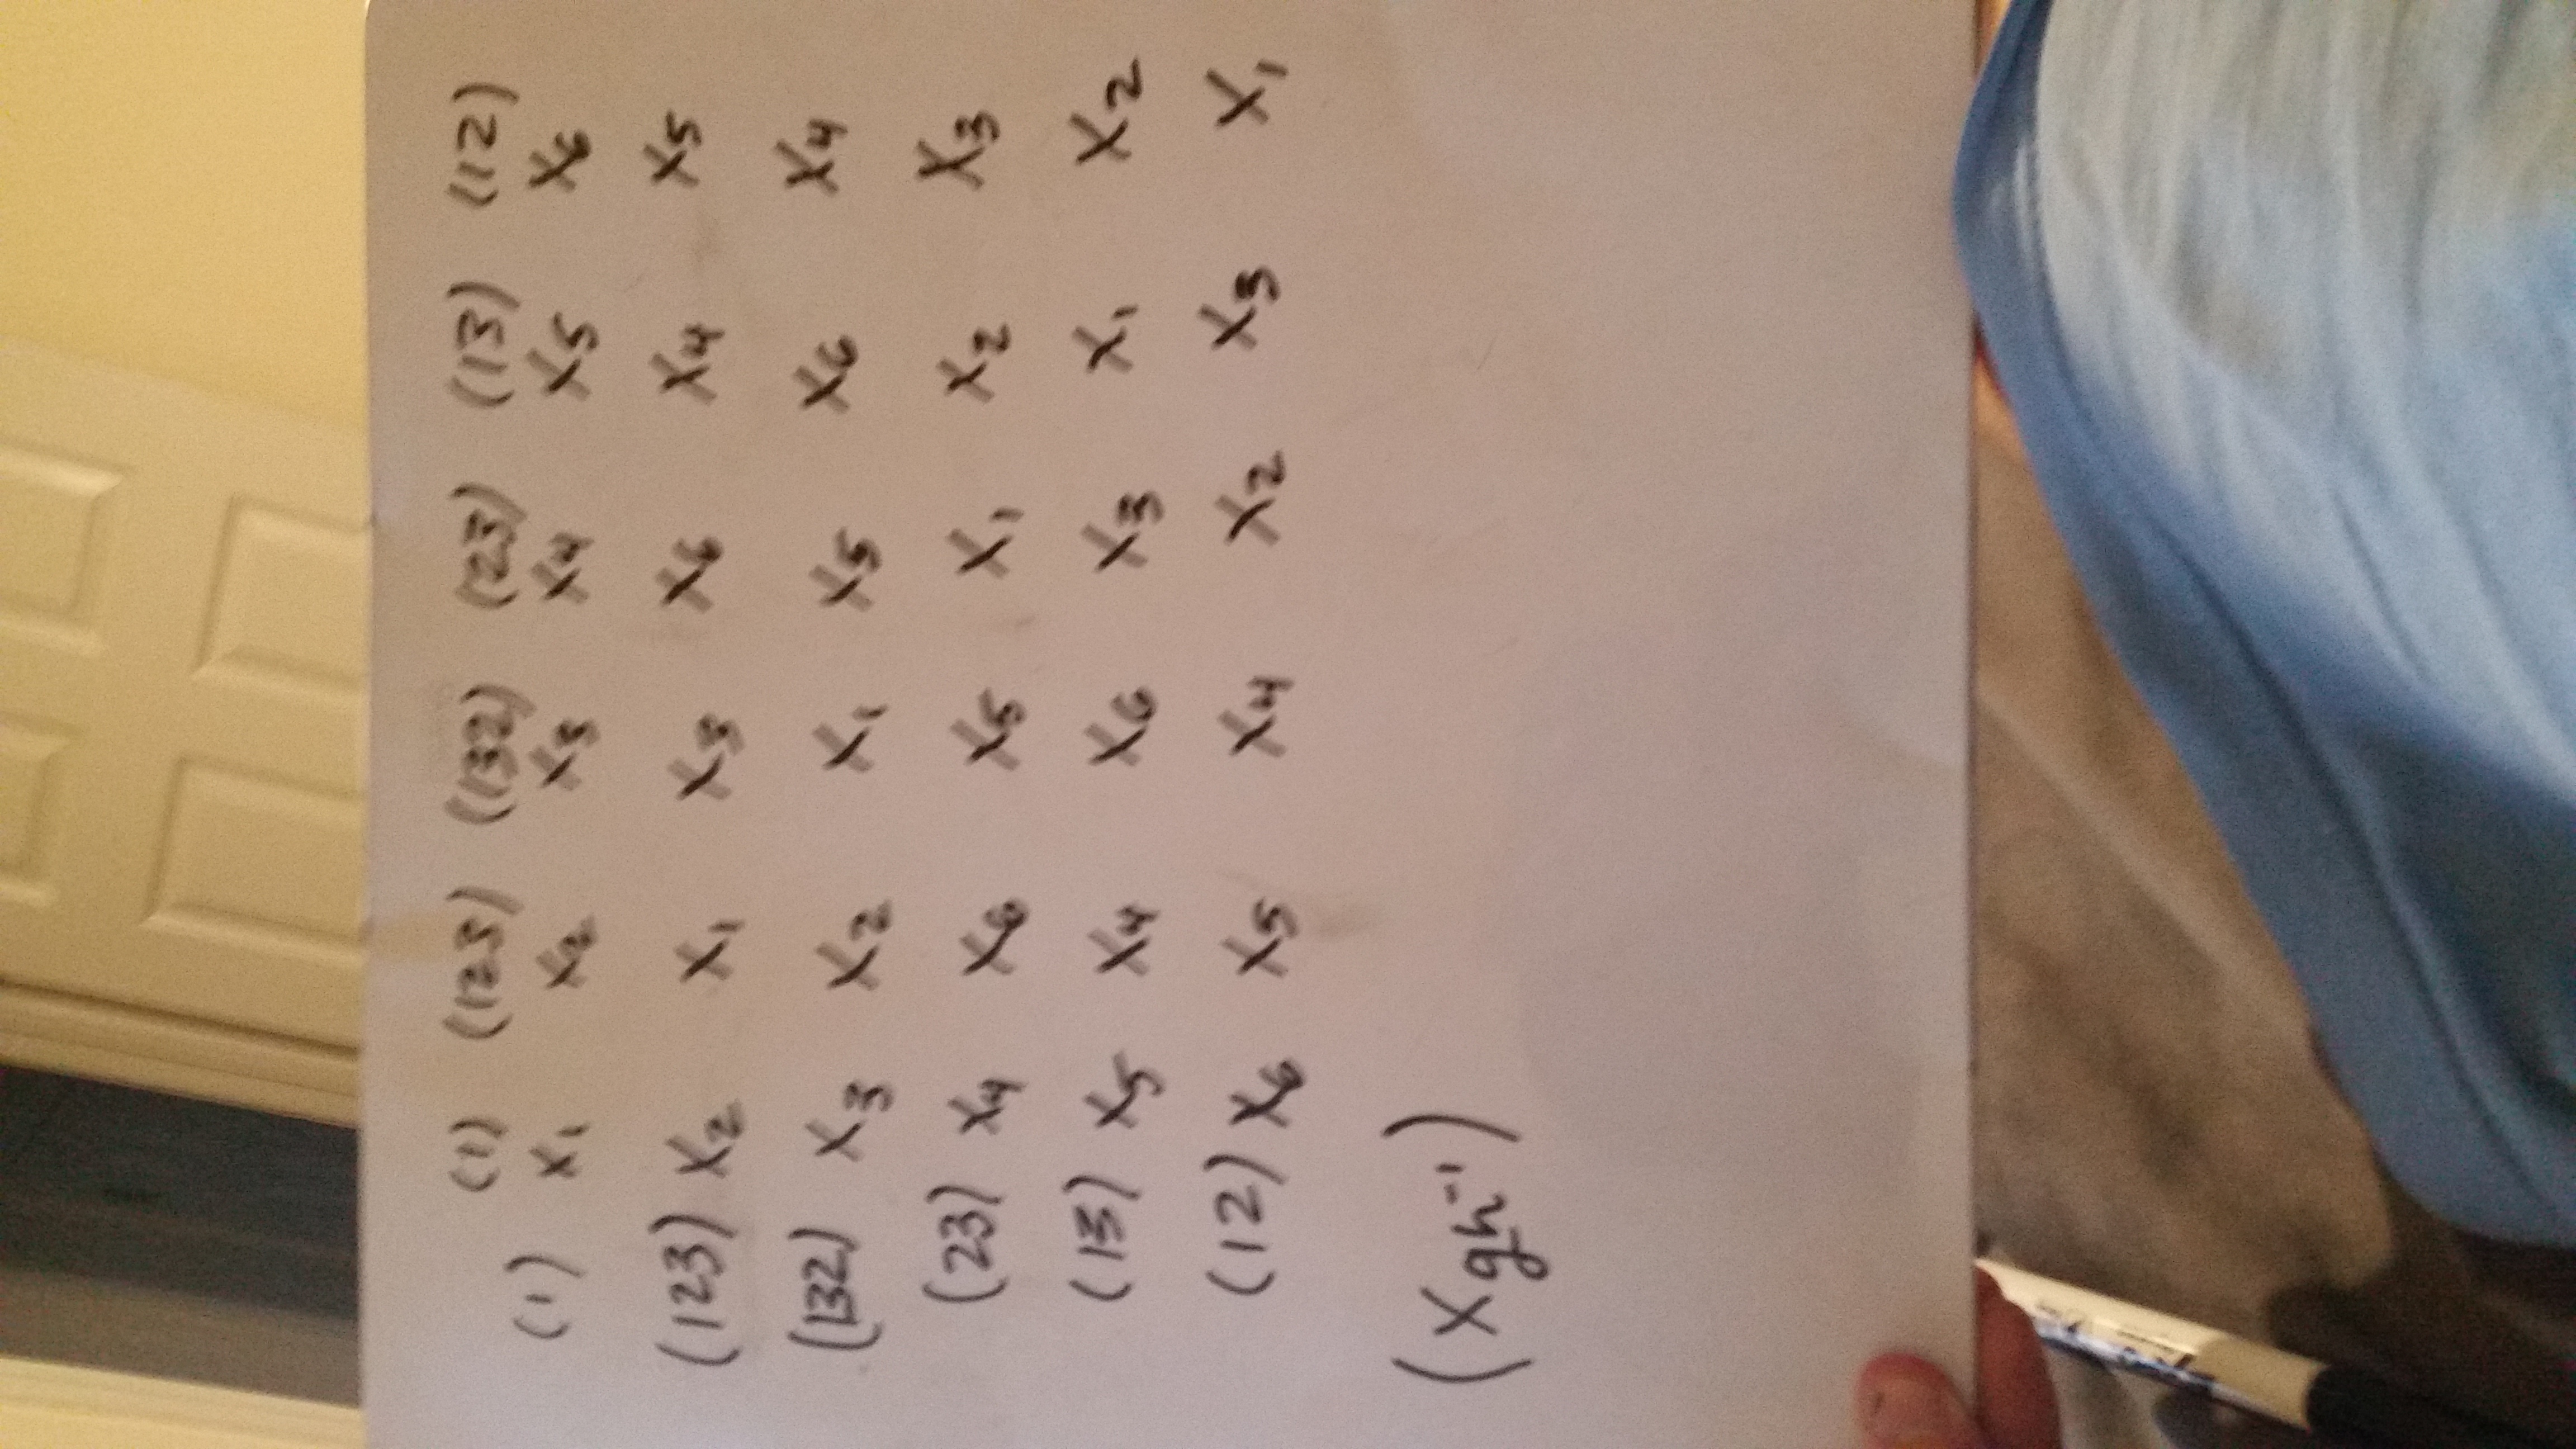 (1) (123) (132) (23) (13) (12)
(1) X1 X2 X3 X4 X5 X6
(123) X2 X1 X3 X6 X4 X5
(132) X3 X2 X1 X5 X6 X4
(23) X4 X6 X5 X1 X2 X3
(13) X5 X4 X6 X3 X1 X2
(12) X6 X5 X4 X2 X3 X1
(Xgh⁻¹)